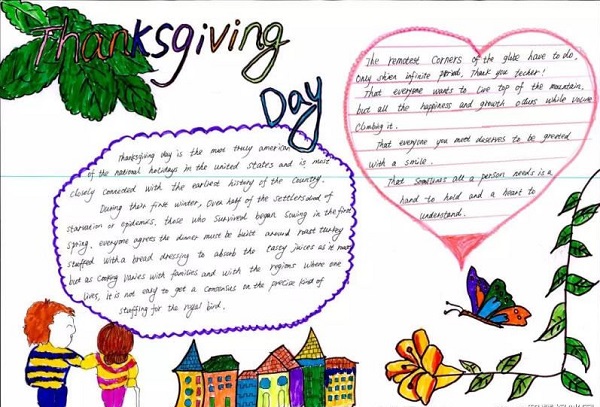 Thanksgiving
Day
Thanksgiving day is the most truly american
of the national holidays in the united states and is most
closely connected with the earliest history of the country.
During their first winter, over half of the settlers died of
starvation or epidemics, those who survived began sowing in the first
spring. everyone agrees the dinner must be built around roast turkey
stuffed with a bread dressing to absorb the tasty juices as it roasts
but as cooking varies with families and with the regions where one
lives, it is not easy to get a consensus on the precise kind of
stuffing for the royal bird.
The remotest corners of the globe have to do,
Only shien infinite period, thank you techer!
That everyone wants to live top of the mountain,
but all the happiness and growth occurs while
climbing it.
That everyone you meet deserves to be greeted
with a smile.
That sometimes all a person needs is a
hand to hold and a heart to
understand.